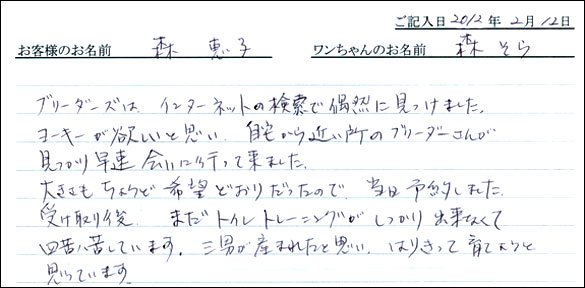 ご記入日2012年2月12日
お客様のお名前 森 恵子 ワンちゃんのお名前 森 そら
ブリーダーズは インターネットの検索で偶然に見つけました。
ヨーキーが欲しいと思い 自宅から近い所のブリーダーさんが
見つかり早速 会いに行って来ました。
大きさもちょうど 希望 どおりだったので、当日予約しました。
受け取り後 まだトイレトレーニングが しっかり 出来なくて
四苦八苦しています。三男が産まれたと思い はりきって 育てようと
思っています。